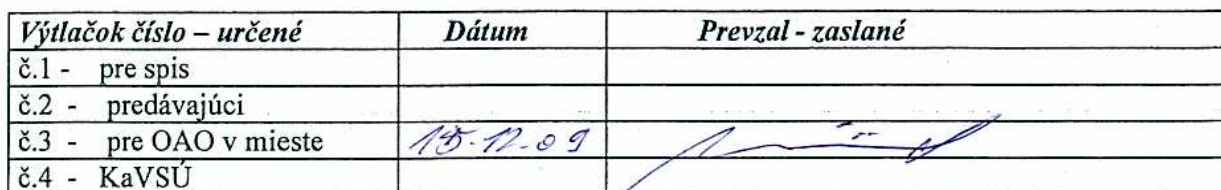 Výtlačok číslo – určené Dátum Prevzal - zaslané
č.1 - pre spis
č.2 - predávajúci
č.3 - pre OAO v mieste 15-12-09
č.4 - KaVSÚ